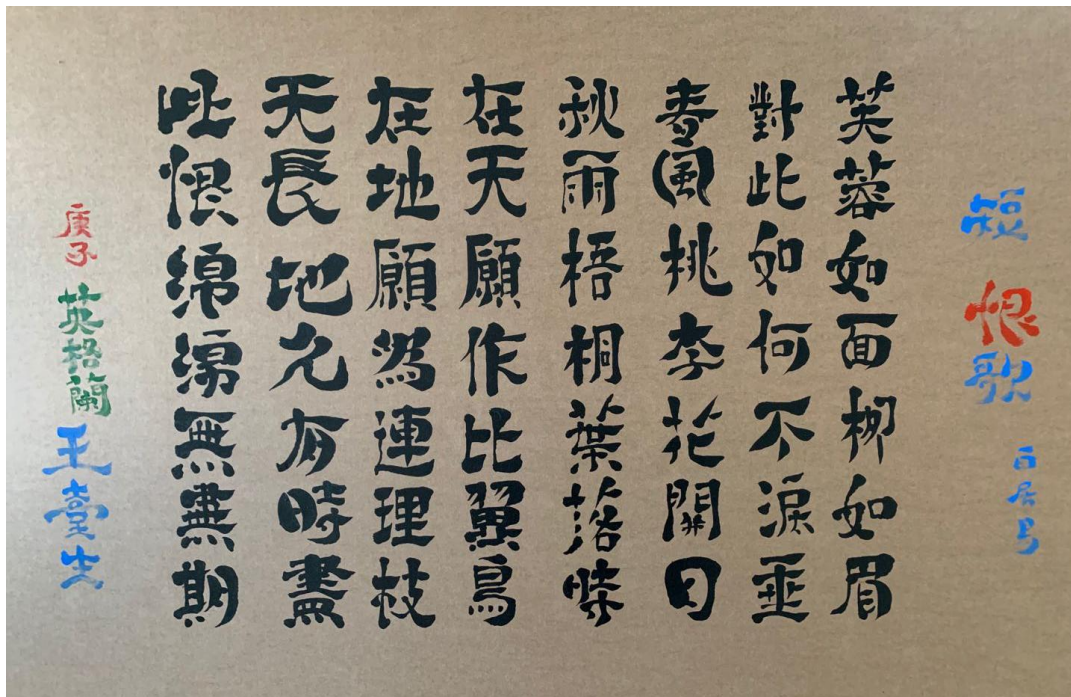 短恨歌
白居易
芙蓉如面柳如眉
對此如何不淚垂
春風桃李花開日
秋雨梧桐葉落時
在天願作比翼鳥
在地願為連理枝
天長地久有時盡
此恨綿綿無無期
庚子 英格蘭 王臺生